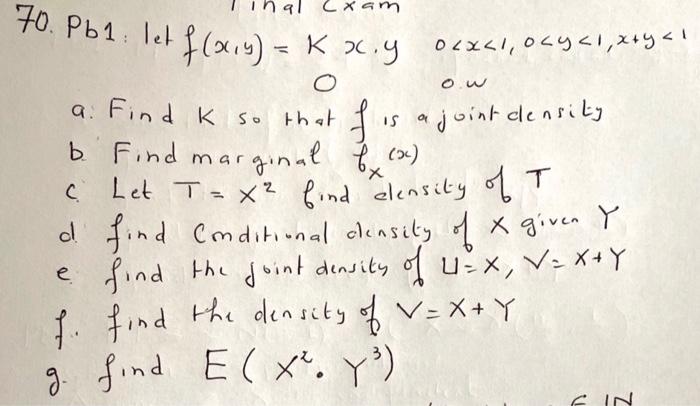 Final Exam
70. Pb1: let f(x,y) = K x.y 0<x<1, 0<y<1, x+y<1
0 o.w
a: Find K so that f is a joint density
b. Find marginal f_x(x)
c. Let T = X² find density of T
d. find Conditional density of X given Y
e. find the joint density of U=X, V=X+Y
f. find the density of V=X+Y
g. find E(X². Y³)